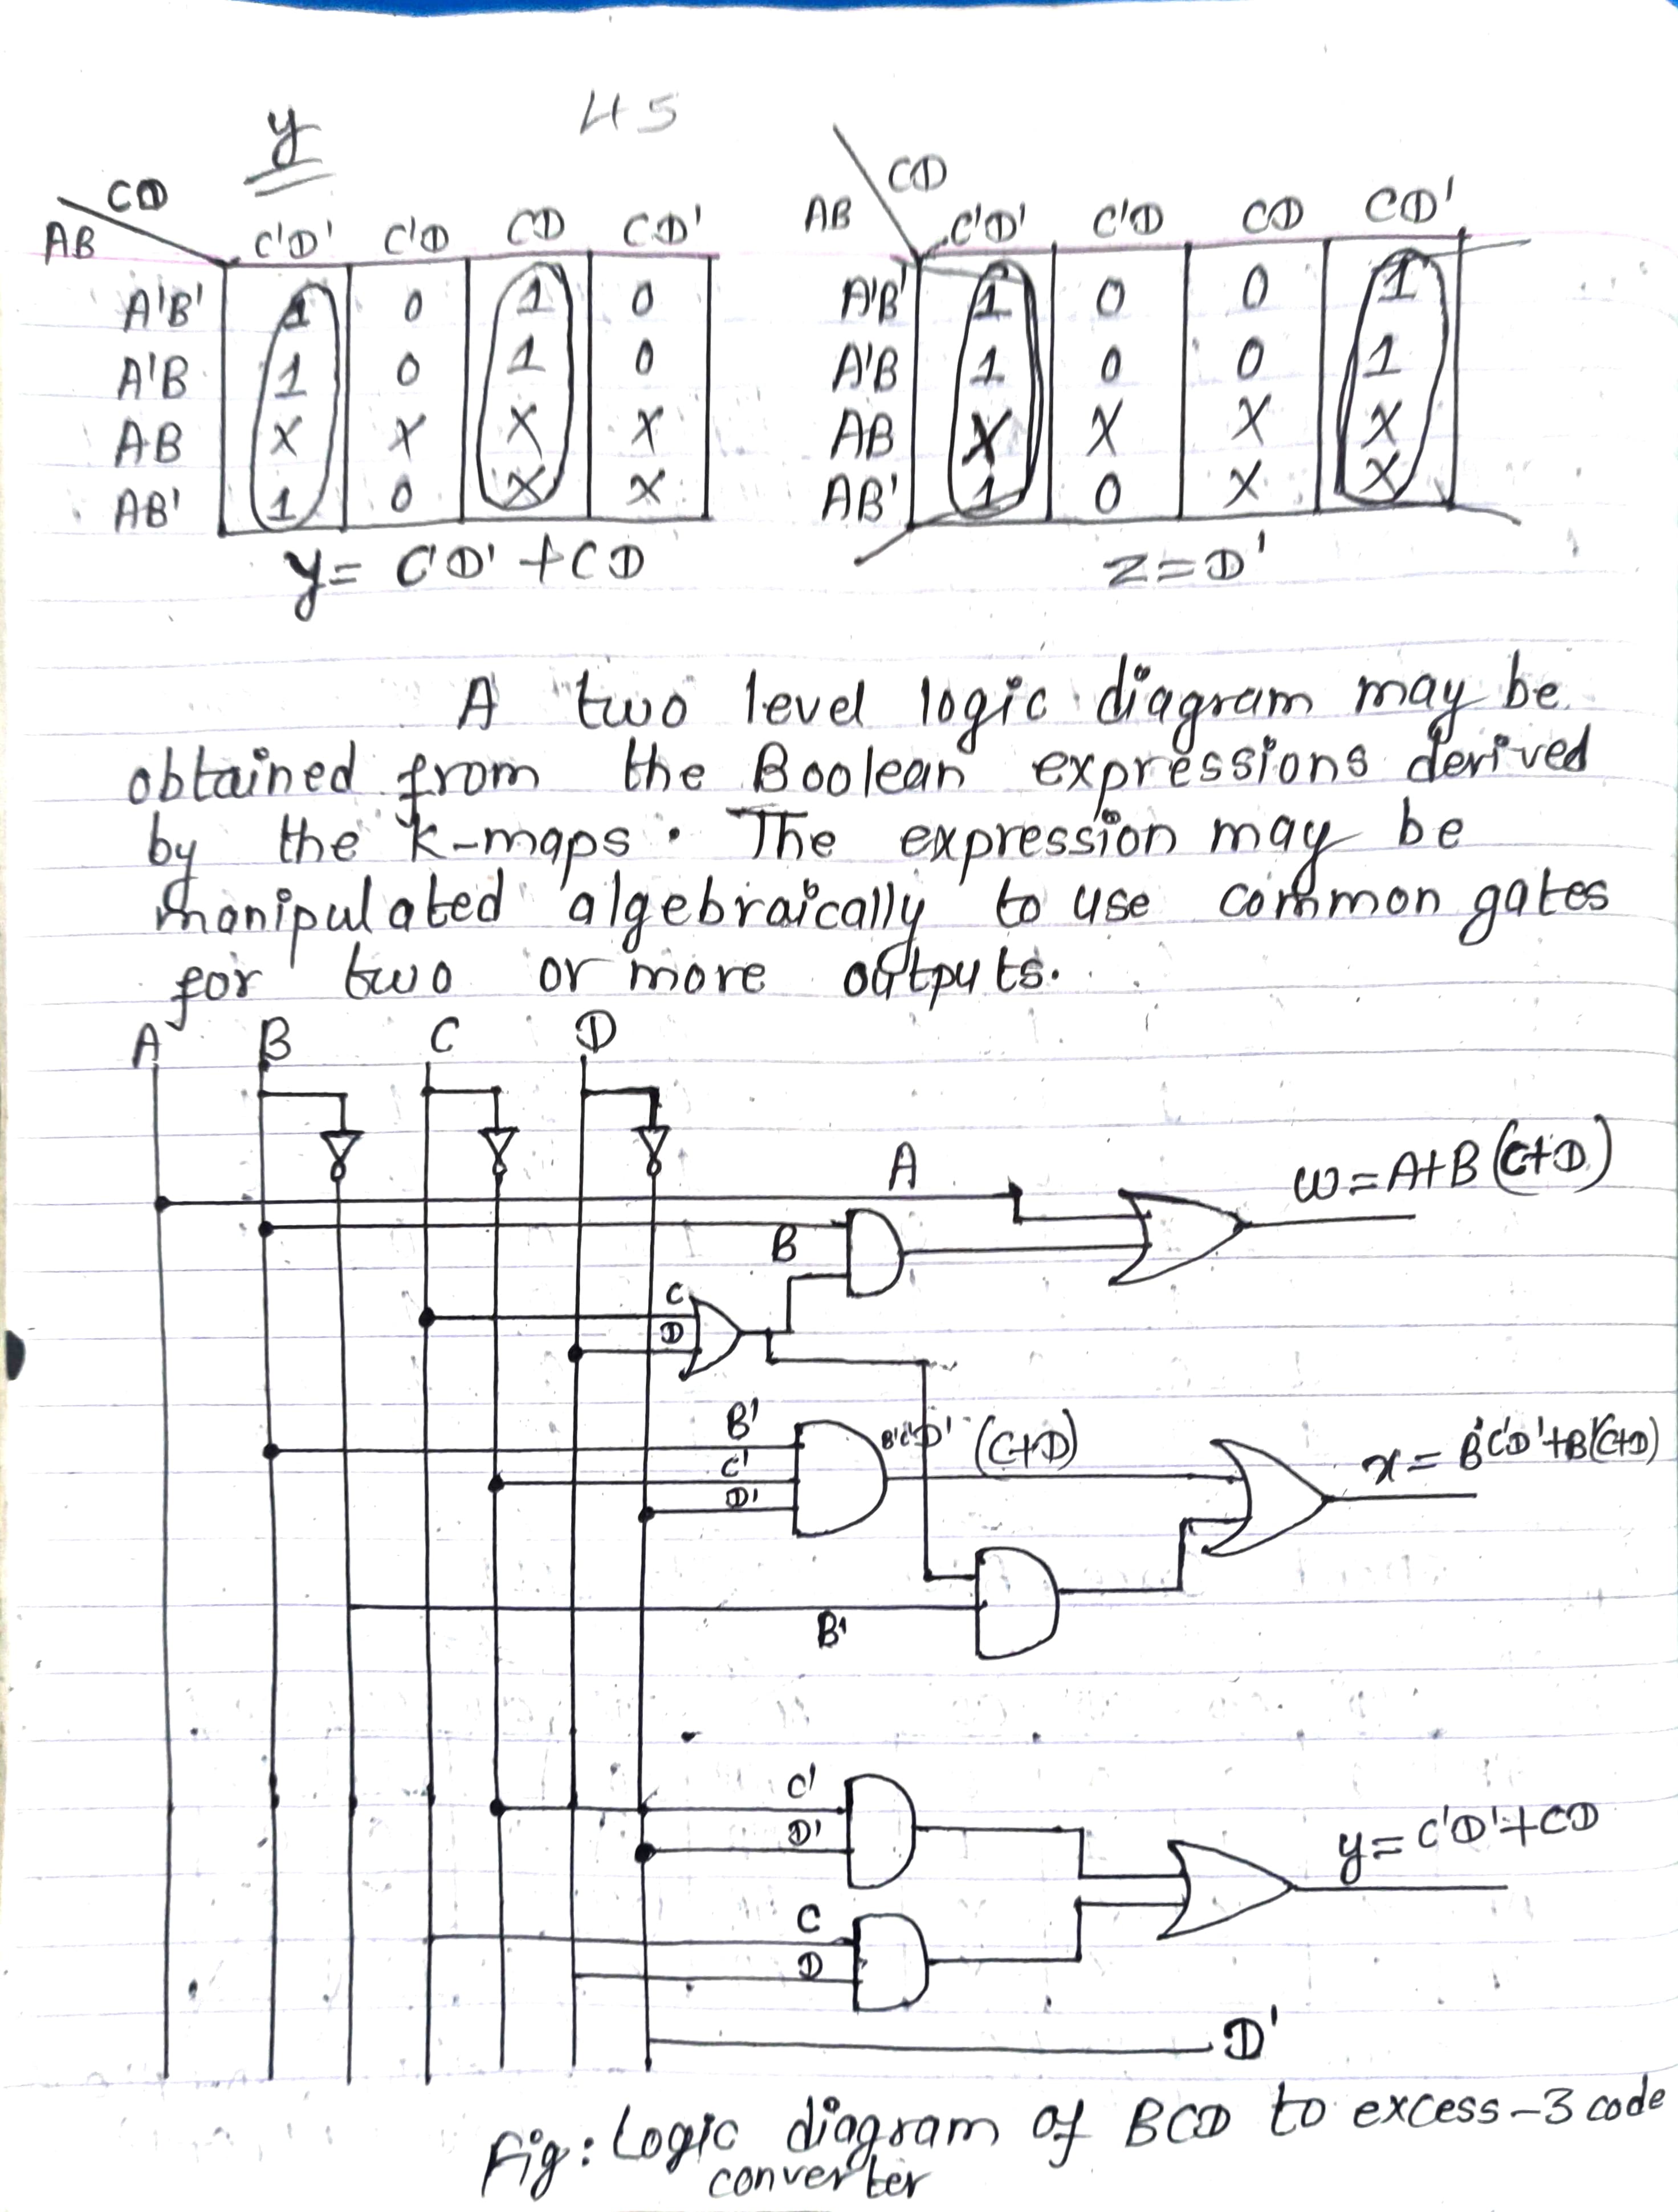 45
y
CD
AB
C'D' C'D CD CD'
A'B' 1 0 1 0
A'B 1 0 1 0
AB X X X X
AB' 1 0 X X
y = C'D' + CD
CD
AB
C'D' C'D CD CD'
A'B' 1 0 0 1
A'B 1 0 0 1
AB X X X X
AB' 1 0 X X
z = D'
A two level logic diagram may be
obtained from the Boolean expressions derived
by the k-maps. The expression may be
manipulated algebraically to use common gates
for two or more outputs.
A B C D
A
w = A+B (C+D)
B
C
D
B'
C'
D'
B'C'D' (C+D)
x = B'C'D'+B'(C+D)
B'
C'
D'
y = C'D'+CD
C
D
D'
Fig: Logic diagram of BCD to excess-3 code
converter